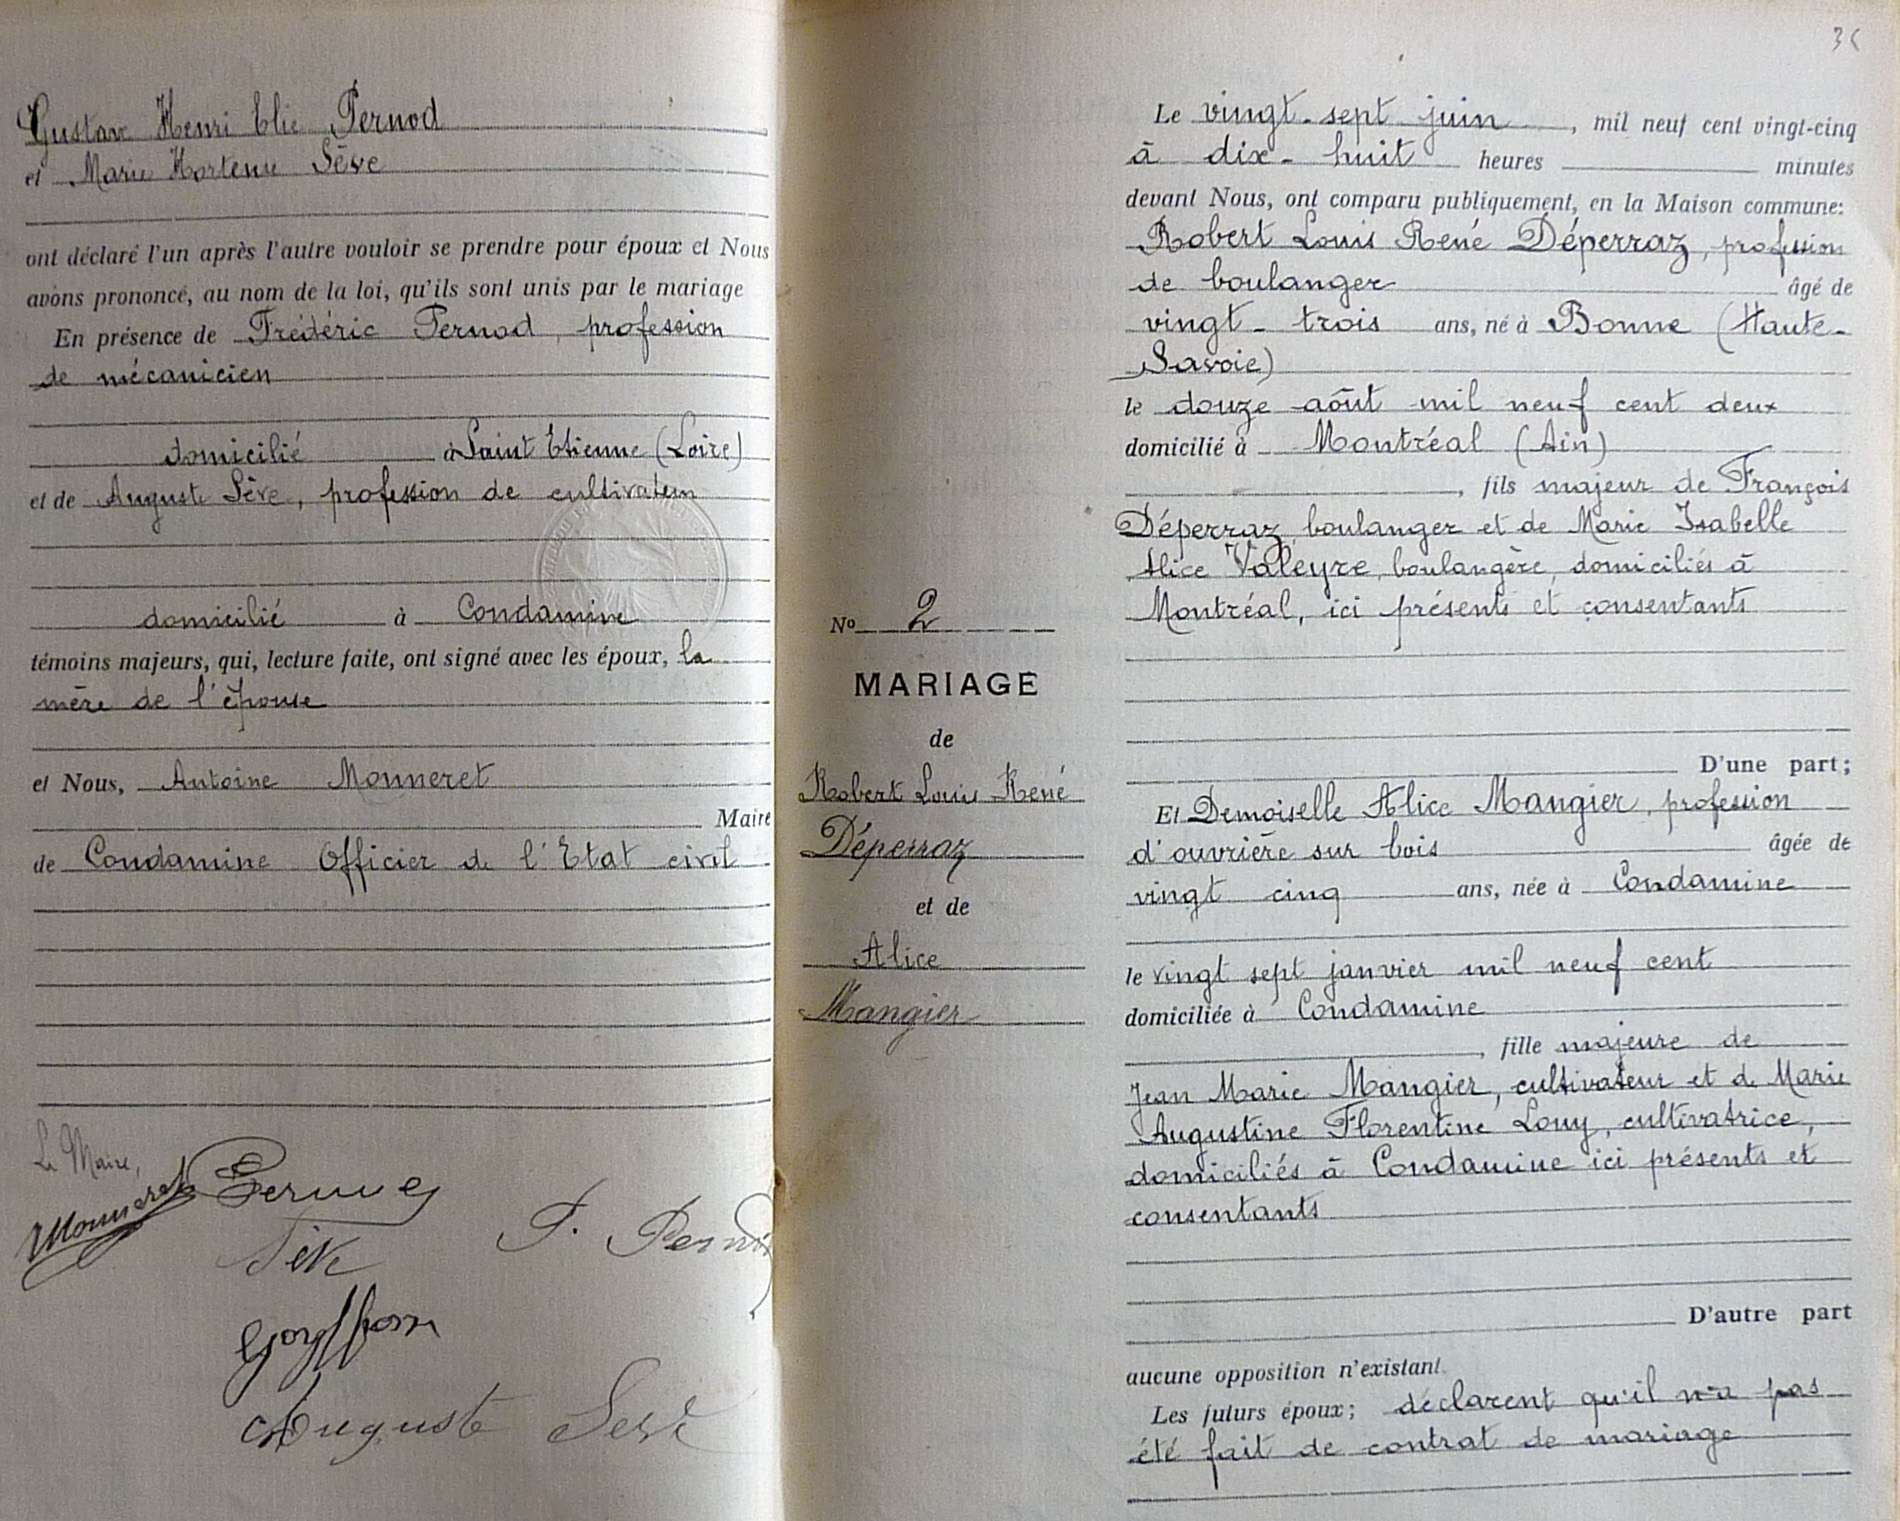 Gustave Henri Elie Pernod
et Marie Hortense Sève
ont déclaré l'un après l'autre vouloir se prendre pour époux et Nous
avons prononcé, au nom de la loi, qu'ils sont unis par le mariage
En présence de Frédéric Pernod, profession
de mécanicien
domicilié à Saint Etienne (Loire)
et de Auguste Sève, profession de cultivateur
domicilié à Condamine
témoins majeurs, qui, lecture faite, ont signé avec les époux, la
mère de l'épouse
et Nous, Antoine Monneret
Maire
de Condamine Officier de l'Etat civil
Le Maire,
Monneret
Sève
F. Pernod
Auguste Seve
No 2
MARIAGE
de
Robert Louis René
Déperraz
et de
Alice
Mangier
Le vingt-sept juin, mil neuf cent vingt-cinq
à dix-huit heures minutes
devant Nous, ont comparu publiquement, en la Maison commune:
Robert Louis René Déperraz, profession
de boulanger âgé de
vingt-trois ans, né à Bonne (Haute-
Savoie)
le douze août mil neuf cent deux
domicilié à Montréal (Ain)
, fils majeur de François
Déperraz, boulanger et de Marie Isabelle
Alice Valeyre, boulangère, domiciliés à
Montréal, ici présents et consentants
D'une part;
Et Demoiselle Alice Mangier, profession
d'ouvrière sur bois âgée de
vingt cinq ans, née à Condamine
le vingt sept janvier mil neuf cent
domiciliée à Condamine
, fille majeure de
Jean Marie Mangier, cultivateur et de Marie
Augustine Florentine Louy, cultivatrice,
domiciliés à Condamine ici présents et
consentants
D'autre part
aucune opposition n'existant.
Les futurs époux; déclarent qu'il n'a pas
été fait de contrat de mariage